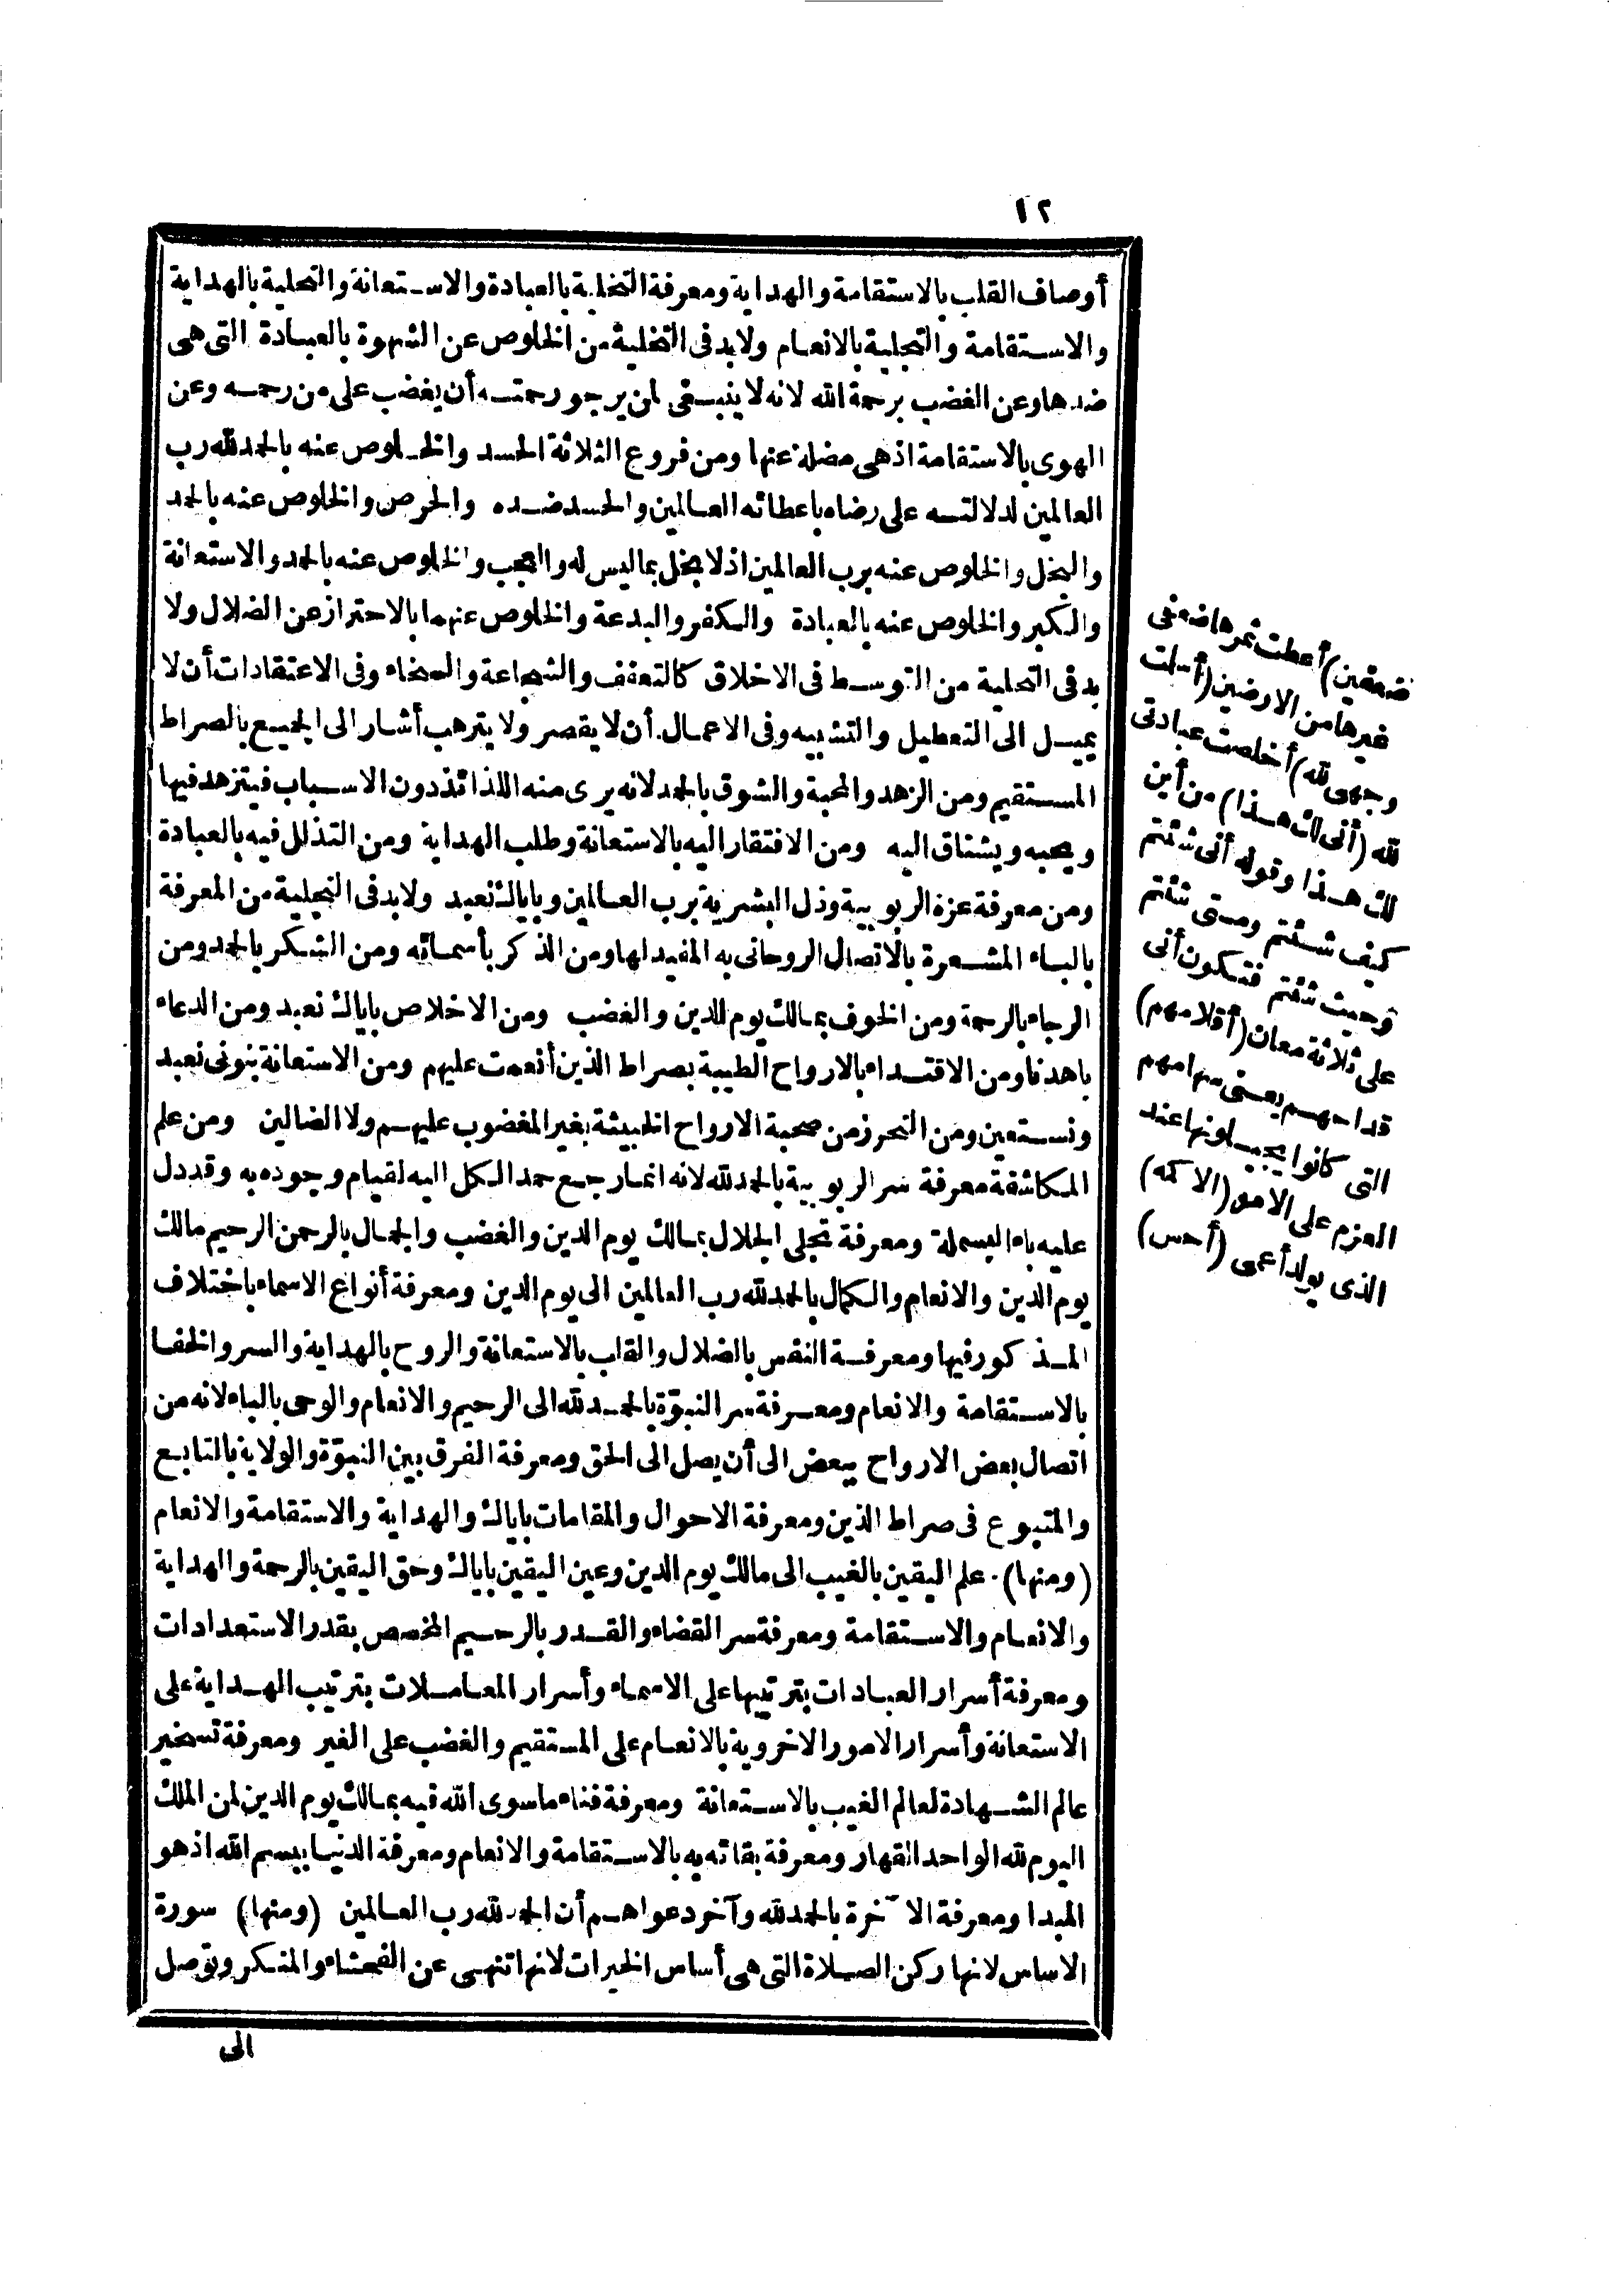 ١٢
أوصاف القلب بالاستقامة والهداية ومعرفة التخلية بالعبادة والاستعانة والتحلية بالهداية
والاستقامة والتجلية بالانعام ولابد فى التخلية من الخلوص عن الشهوة بالعبادة التى هى
ضدها وعن الغضب برحمة الله لانه لا ينبغى لمن يرجو رحمته أن يغضب على من رحمه وعن
الهوى بالاستقامة اذ هى مضلة عنها ومن فروع الثلاثة الحسد والخلوص عنه بالحمد لله رب
العالمين لدلالته على رضاه باعطائه العالمين والحسد ضده والحرص والخلوص عنه بالحمد
والبخل والخلوص عنه برب العالمين اذ لا بخل بما ليس له والعجب والخلوص عنه بالحمد والاستعانة
والكبر والخلوص عنه بالعبادة والكفر والبدعة والخلوص عنهما بالاحتراز عن الضلال ولا
بد فى التحلية من التوسط فى الاخلاق كالتعفف والشجاعة والسخاء وفى الاعتقادات أن لا
يميل الى التعطيل والتشبيه وفى الاعمال أن لا يقصر ولا يترهب أشار الى الجميع بالصراط
المستقيم ومن الزهد والمحبة والشوق بالحمد لانه يرى منه اللذائذ دون الاسباب فيتزهد فيها
ويحبه ويشتاق اليه ومن الافتقار اليه بالاستعانة وطلب الهداية ومن التذلل فيه بالعبادة
ومن معرفة عزة الربوبية وذل البشرية برب العالمين وباياك نعبد ولابد فى التجلية من المعرفة
بالباء المشعرة بالاتصال الروحانى به المفيد لها ومن الذكر بأسمائه ومن الشكر بالحمد ومن
الرجاء بالرحمة ومن الخوف بمالك يوم الدين والغضب ومن الاخلاص باياك نعبد ومن الدعاء
باهدنا ومن الاقتداء بالارواح الطيبة بصراط الذين أنعمت عليهم ومن الاستعانة بنونى نعبد
ونستعين ومن التحرز من صحبة الارواح الخبيثة بغير المغضوب عليهم ولا الضالين ومن علم
المكاشفة معرفة سر الربوبية بالحمد لله لانه انما رجع حمد الكل اليه لقيام وجوده به وقد دل
عليه باء البسملة ومعرفة تجلى الجلال بمالك يوم الدين والغضب والجمال بالرحمن الرحيم مالك
يوم الدين والانعام والكمال بالحمد لله رب العالمين الى يوم الدين ومعرفة أنواع الاسماء باختلاف
المذكور فيها ومعرفة النفس بالضلال والقلب بالاستعانة والروح بالهداية والسر والخفا
بالاستقامة والانعام ومعرفة سر النبوّة بالحمد لله الى الرحيم والانعام والوحى بالباء لانه من
اتصال بعض الارواح ببعض الى أن يصل الى الحق ومعرفة الفرق بين النبوّة والولاية بالتابع
والمتبوع فى صراط الذين ومعرفة الاحوال والمقامات باياك والهداية والاستقامة والانعام
(ومنها) علم اليقين بالغيب الى مالك يوم الدين وعين اليقين باياك وحق اليقين بالرحمة والهداية
والانعام والاستقامة ومعرفة سر القضاء والقدر بالرحيم المخصص بقدر الاستعدادات
ومعرفة أسرار العبادات بترتيبها على الاسماء وأسرار المعاملات بترتيب الهداية على
الاستعانة وأسرار الامور الاخروية بالانعام على المستقيم والغضب على الغير ومعرفة تسخير
عالم الشهادة لعالم الغيب بالاستعانة ومعرفة فناء ما سوى الله فيه بمالك يوم الدين لمن الملك
اليوم لله الواحد القهار ومعرفة بقائه به بالاستقامة والانعام ومعرفة الدنيا ببسم الله اذ هو
المبدا ومعرفة الآخرة بالحمد لله وآخر دعواهم أن الحمد لله رب العالمين (ومنها) سورة
الاساس لانها ركن الصلاة التى هى أساس الخيرات لانها تنهى عن الفحشاء والمنكر وتوصل
الى
ضعفين) أعطت ثمرها ضعفى
غيرها من الارضين (أسلمت
وجهى لله) أخلصت عبادتى
لله (أنى لك هذا) من أين
لك هذا وقوله أنى شئتم
كيف شئتم ومتى شئتم
وحيث شئتم فتكون أنى
على ثلاثة معان (أقلامهم)
قداحهم يعنى سهامهم
التى كانوا يجيلونها عند
العزم على الامر (الاكمه)
الذى يولد أعمى (أحس)